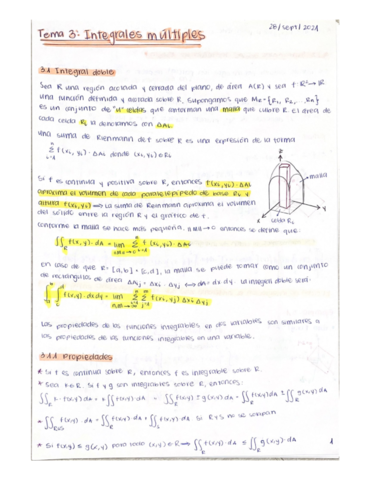 28/sept/2021
Tema 3: Integrales múltiples
3.1 Integral doble
Sea R una región acotada y cerrada del plano, de área A(R) y sea f: R²→R
una función definida y acotada sobre R. Supongamos que MR={R₁, R₂, ..., Rn}
es un conjunto de "n" celdas que conforman una malla que cubre R. El área de
cada celda Ri la denotamos con ΔAi.
Una suma de Riemann de f sobre R es una expresión de la forma
Σ f(xi, yi) · ΔAi donde (xi, yi) ∈ Ri
malla
Si f es continua y positiva sobre R, entonces f(xi, yi) · ΔAi
aproxima el volumen de cada paralelepípedo de base Ri y
altura f(xi, yi) ⇒ La suma de Riemann aproxima el volumen
del sólido entre la región R y el gráfico de f.
Conforme la malla se hace más pequeña, → 0 entonces se define que:
∬R f(x, y) · dA = lim Σ f(xi, yi) · ΔAi
En caso de que R = [a, b] × [c, d], la malla se puede tomar como un conjunto
de rectángulos de área ΔAij = Δxi · Δyj ⇔ dA = dx dy la integral doble será:
∫∫ f(x, y) · dx dy = lim ΣΣ f(xi, yj) Δxi Δyj
Las propiedades de las funciones integrables en dos variables son similares a
las propiedades de las funciones integrables en una variable.
3.1.1 Propiedades
* Si f es continua sobre R, entonces f es integrable sobre R.
* Sea k∈R. Si f y g son integrables sobre R, entonces:
∬R k · f(x, y) dA = k ∬R f(x, y) · dA
∬R f(x, y) ± g(x, y) · dA = ∬R f(x, y) · dA ± ∬R g(x, y) · dA
* ∬R∪S f(x, y) · dA = ∬R f(x, y) · dA + ∬S f(x, y) · dA Si R y S no se
* Si f(x, y) ≤ g(x, y) para todo (x, y) ∈ R ⇒ ∬R f(x, y) · dA ≤ ∬R g(x, y) · dA
1